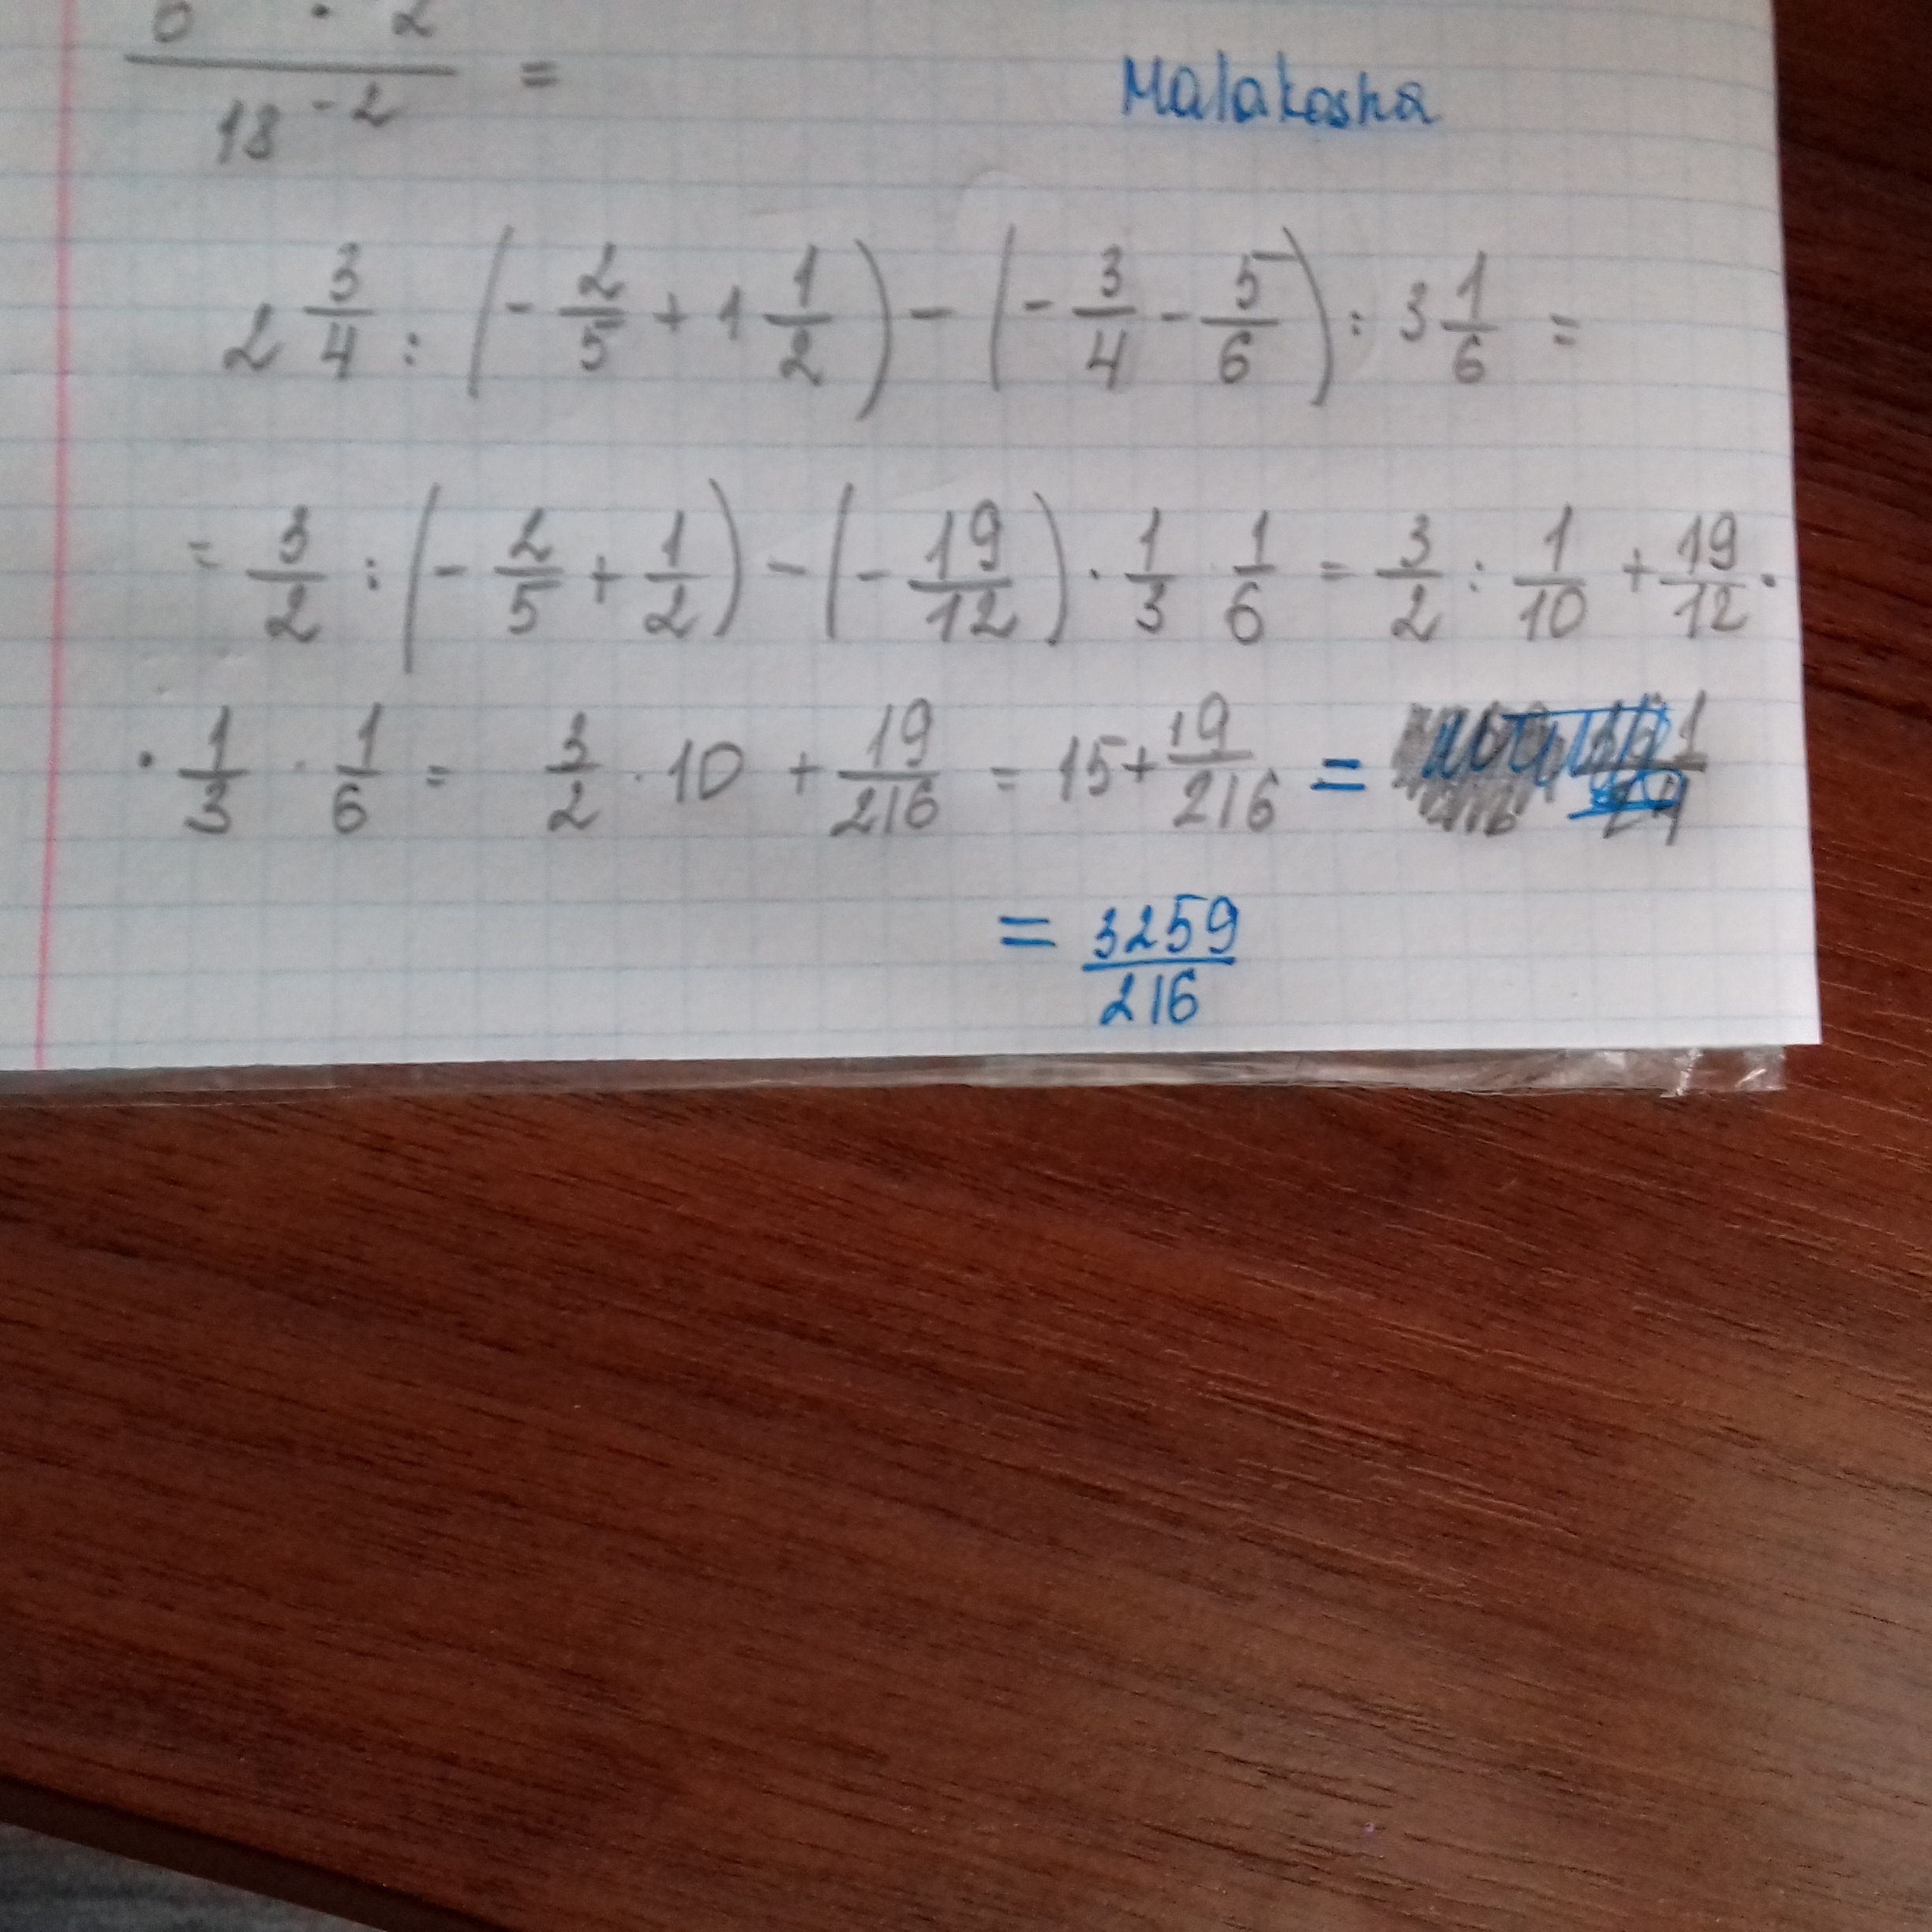 Malakosha
18^{-2} =
2 3/4 : (- 2/5 + 1 1/2) - (- 3/4 - 5/6) : 3 1/6 =
= 3/2 : (- 2/5 + 1/2) - (- 19/12) · 1/3 1/6 = 3/2 : 1/10 + 19/12 ·
· 1/3 · 1/6 = 3/2 · 10 + 19/216 = 15 + 19/216 =
= 3259/216